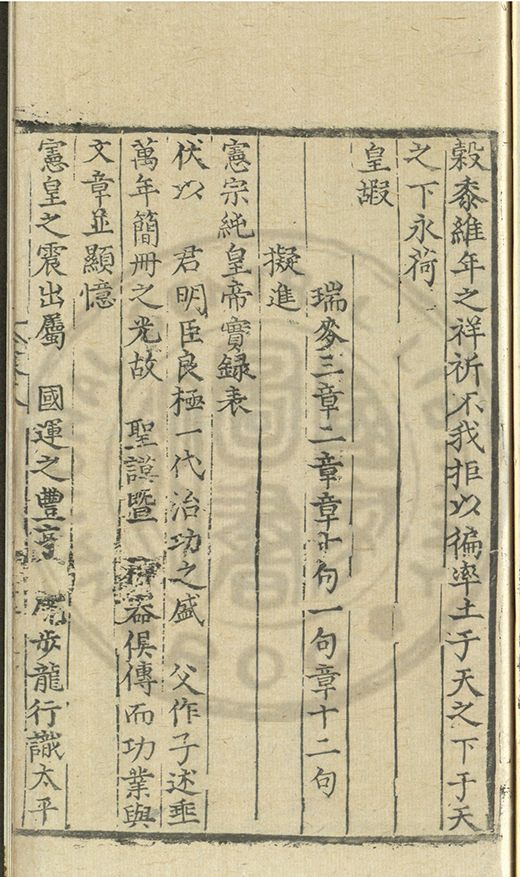 穀黍維年之祥祈不我拒以徧率土于天之下于天
之下永荷
皇嘏
瑞麥三章二章章十句一句章十二句
擬進
憲宗純皇帝實録表
伏以 君明臣良極一代治功之盛 父作子述垂
萬年簡冊之光故 聖謨暨 器俱傳而功業與
文章並顯憶
憲皇之震出屬 國運之豊 步龍行識太平